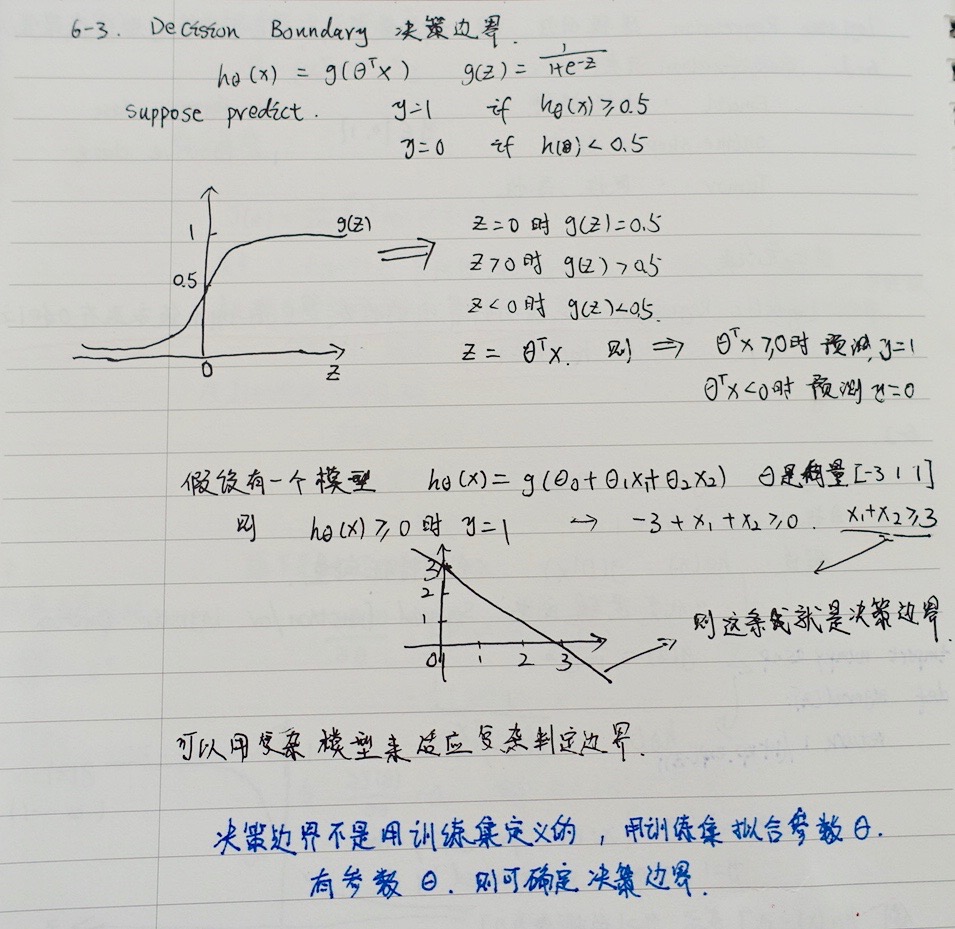 6-3. Decision Boundary 决策边界.
hθ(x) = g(θᵀx) g(z) = 1/(1+e-z)
suppose predict. y=1 if hθ(x) ≥ 0.5
y=0 if h(θ) < 0.5
1 g(z)
0.5
0 z
⇒ z=0 时 g(z)=0.5
z>0 时 g(z)>0.5
z<0 时 g(z)<0.5.
z = θᵀx. 则 ⇒ θᵀx ≥ 0时 预测 y=1
θᵀx<0时 预测 y=0
假设有一个模型 hθ(x) = g(θ0+θ1x1+θ2x2) θ是向量[-3 1 1]
则 hθ(x) ≥ 0 时 y=1 → -3 + x1 + x2 ≥ 0. x1+x2 ≥ 3
3
2
1
0 1 2 3
则这条线就是决策边界.
可以用复杂模型来适应复杂判定边界.
决策边界不是用训练集定义的，用训练集拟合参数θ.
有参数θ. 则可确定决策边界.